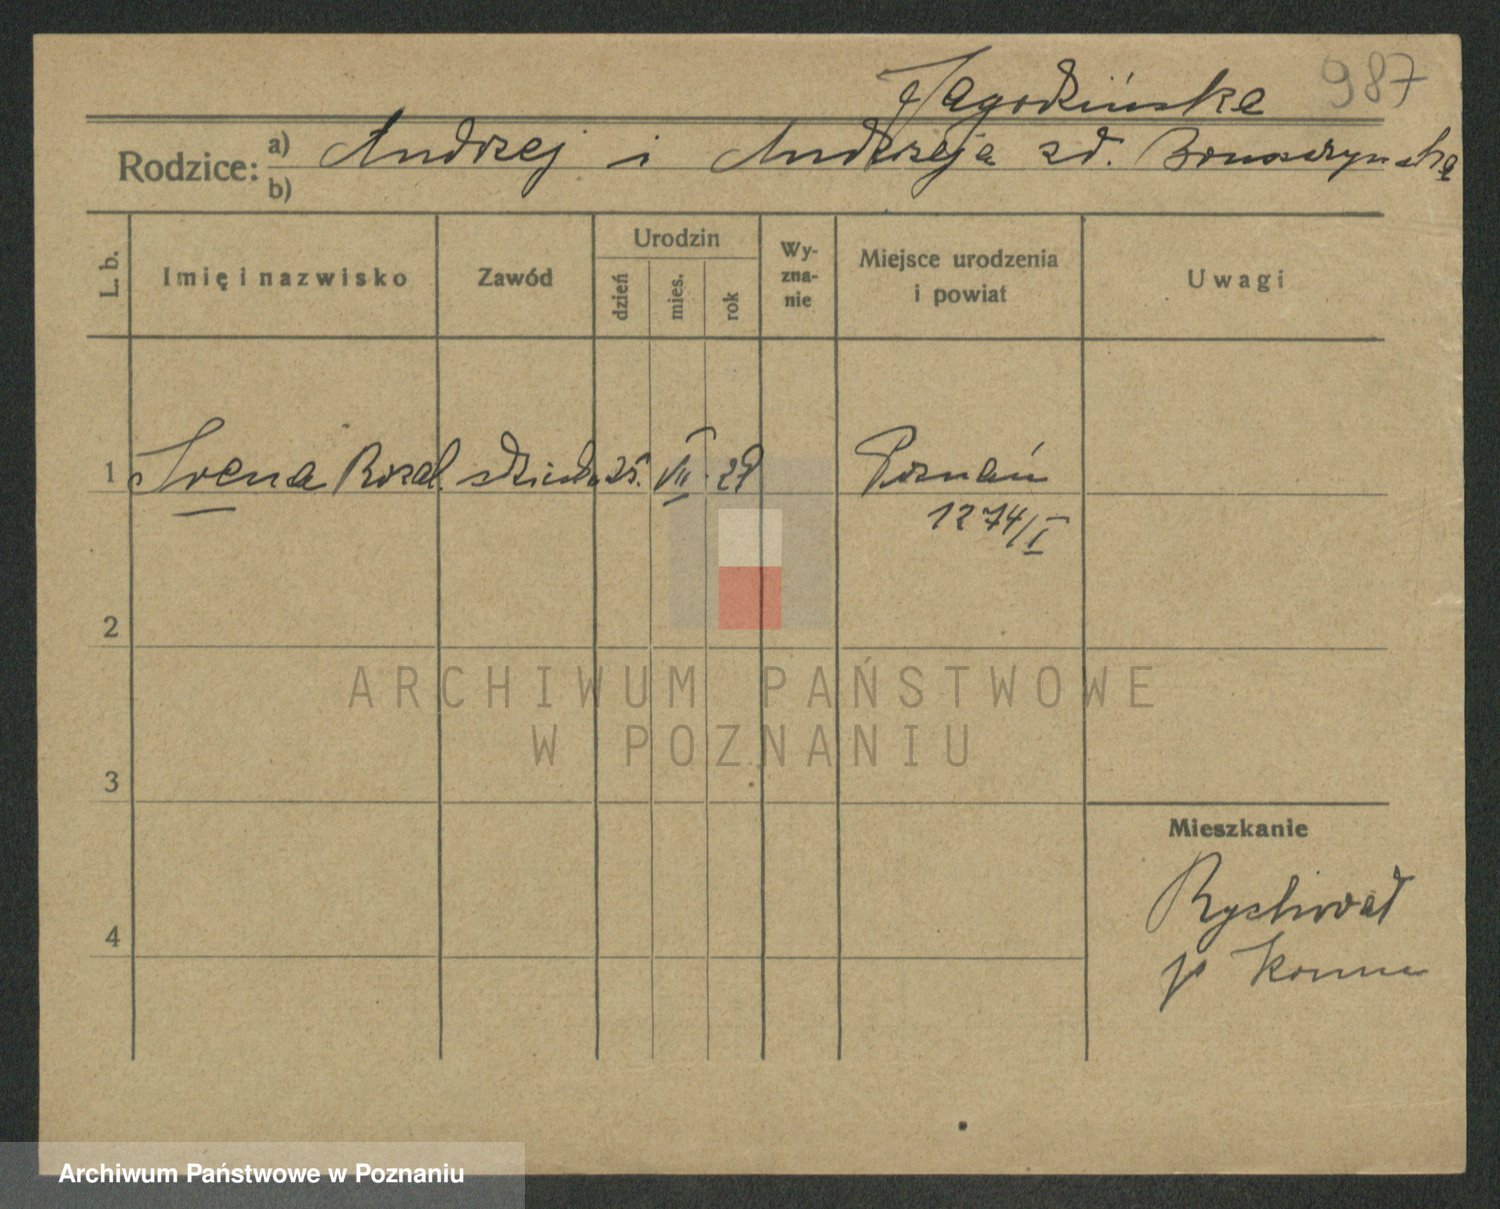 Jagodzińska 987
Rodzice: a) Andrzej i Andrzeja zd.
b)
L. b. Imię i nazwisko Zawód Urodzin dzień mies. rok Wy-zna-nie Miejsce urodzenia i powiat Uwagi
1 Irena Rozal. 25. VII. 29 Poznań
1274/I
2
3
4
Mieszkanie
Rychwał
p Konin
ARCHIWUM PAŃSTWOWE
W POZNANIU
Archiwum Państwowe w Poznaniu